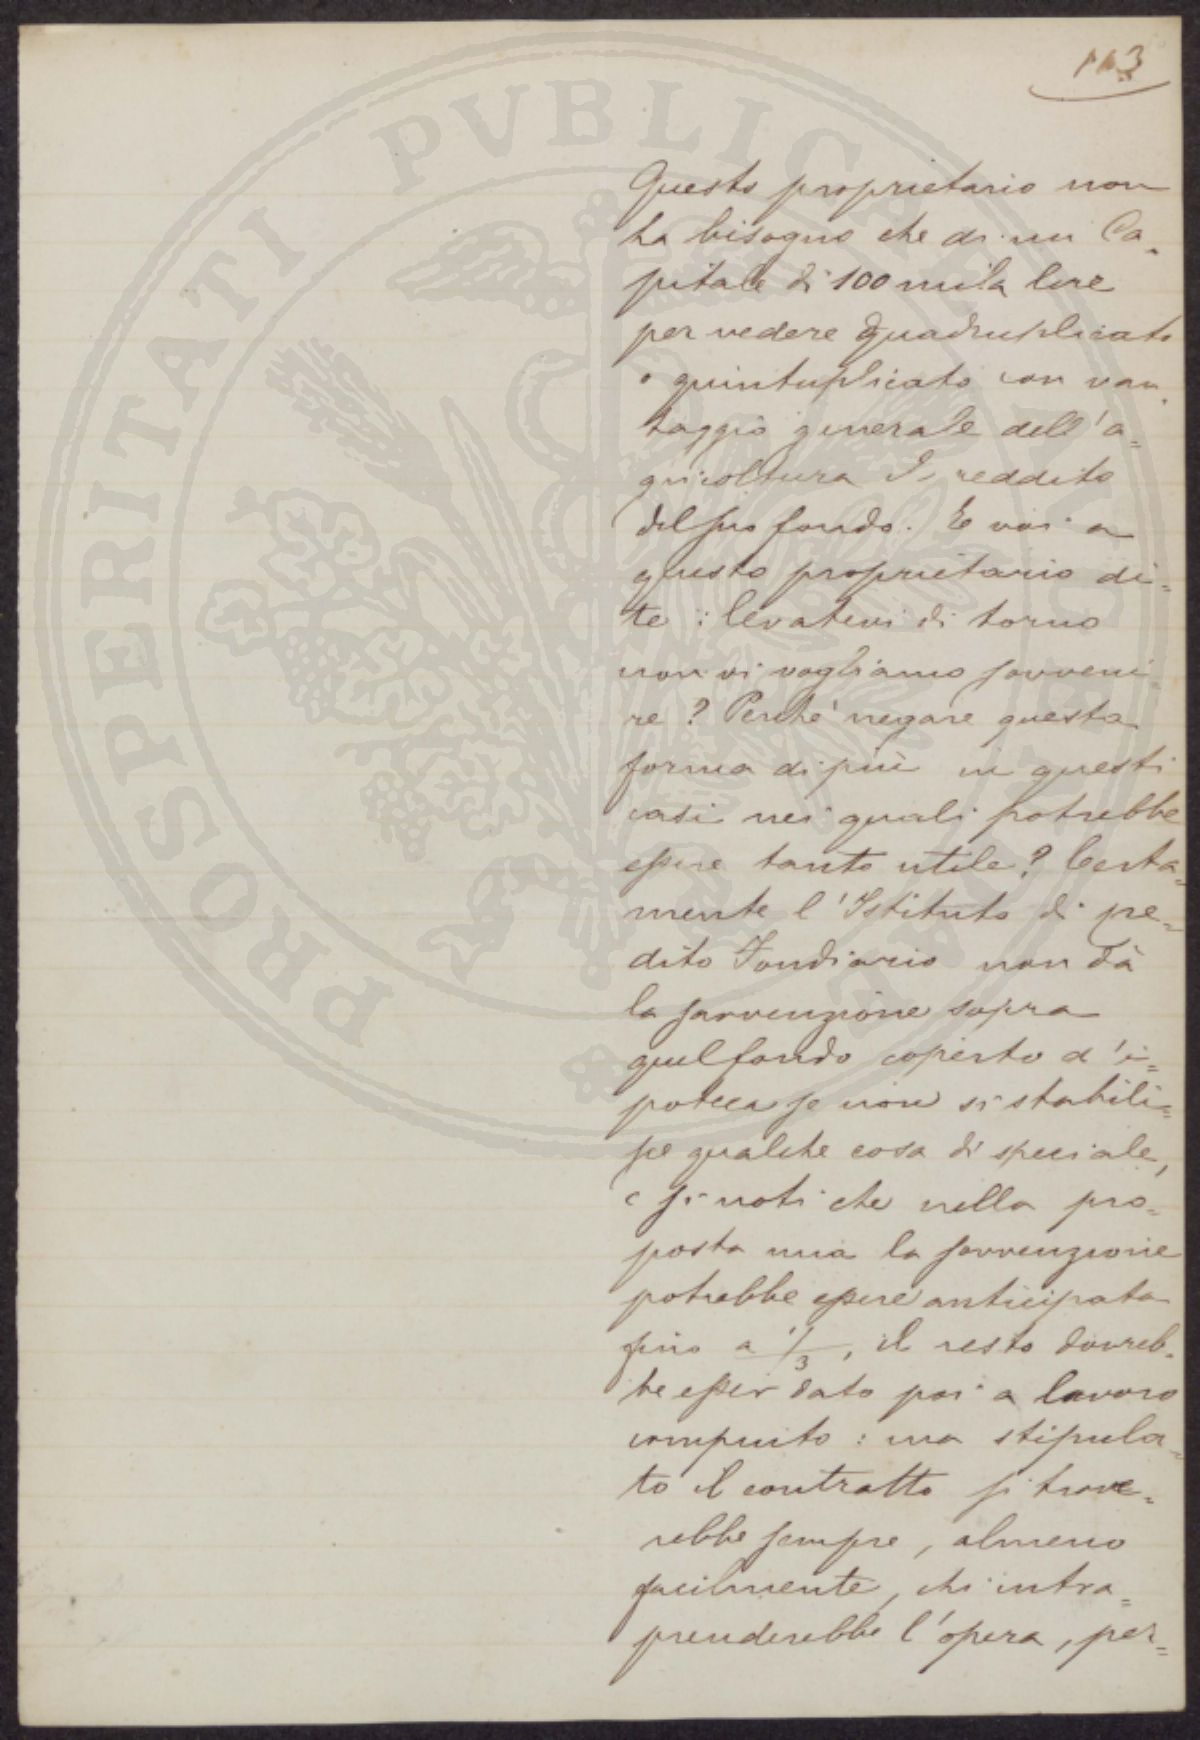 113
Questo proprietario non
ha bisogno che di un Ca-
pitale di 100 mila lire
per vedere quadruplicato
o quintuplicato con van-
taggio generale dell'a=
gricoltura il reddito
del suo fondo. E voi a
questo proprietario di=
te: levatevi di torno
non vi vogliamo sovveni-
re? Perchè negare questa
forma di più in questi
casi nei quali potrebbe
essere tanto utile? Certa=
mente l'Istituto di cre=
dito Fondiario non dà
la sovvenzione sopra
quel fondo coperto d'i=
poteca se non si stabili=
sce qualche cosa di speciale,
e si noti che nella pro=
posta mia la sovvenzione
potrebbe essere anticipata
fino a 1/3, il resto dovreb-
be esser dato poi a lavoro
compiuto: ma stipula-
to il contratto si trove=
rebbe sempre, almeno
facilmente, chi intra=
prenderebbe l'opera, per=
PROSPERITATI PVBLICAE